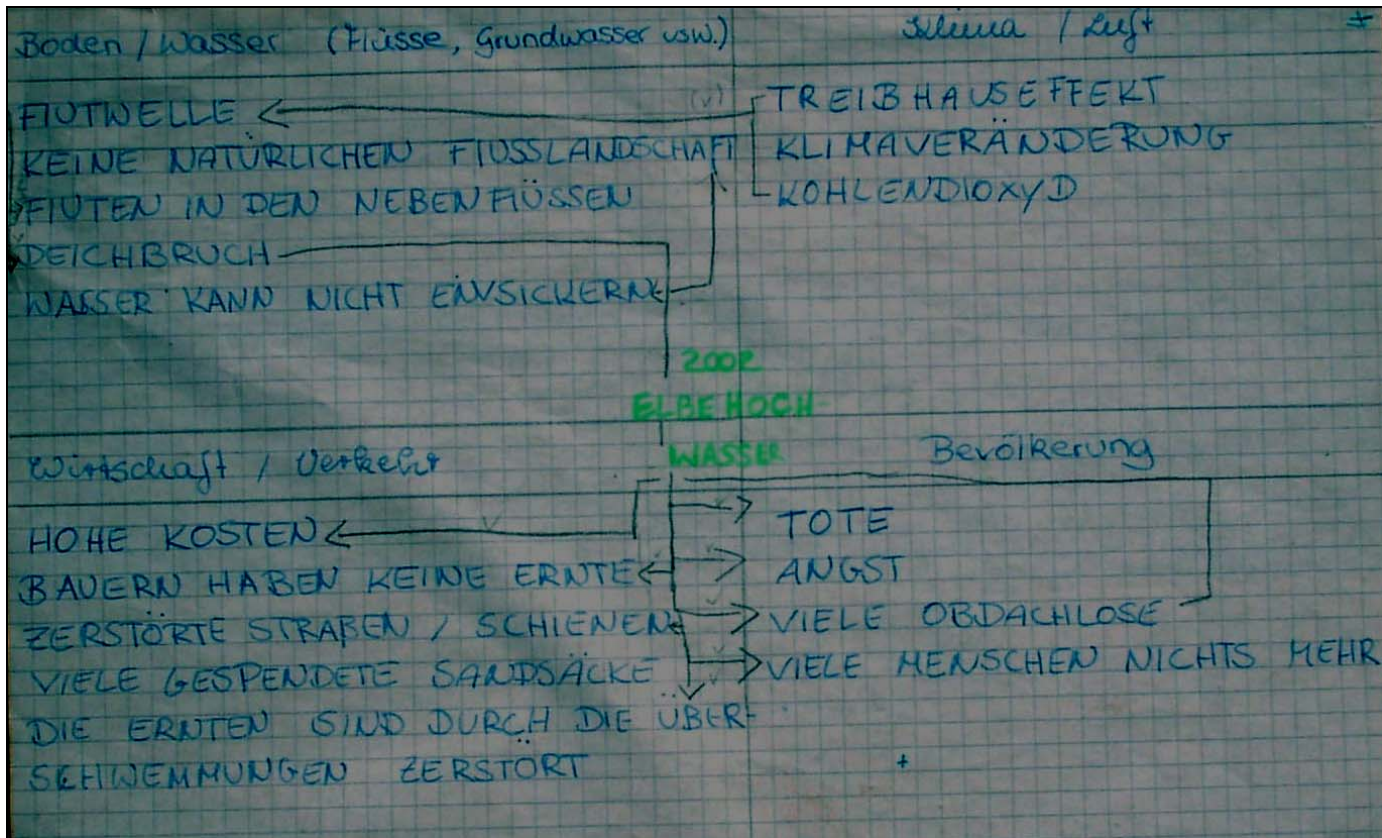 Boden / Wasser (Flüsse, Grundwasser usw.)
FLUTWELLE
KEINE NATÜRLICHEN FLUSSLANDSCHAFT
FLUTEN IN DEN NEBENFLÜSSEN
DEICHBRUCH
WASSER KANN NICHT EINSICKERN
Klima / Luft
TREIBHAUSEFFEKT
KLIMAVERÄNDERUNG
KOHLENDIOXYD
2002
ELBEHOCH-
WASSER
Wirtschaft / Verkehr
HOHE KOSTEN
BAUERN HABEN KEINE ERNTE
ZERSTÖRTE STRAßEN / SCHIENEN
VIELE GESPENDETE SANDSÄCKE
DIE ERNTEN SIND DURCH DIE ÜBER-
SCHWEMMUNGEN ZERSTÖRT
Bevölkerung
TOTE
ANGST
VIELE OBDACHLOSE
VIELE MENSCHEN NICHTS MEHR